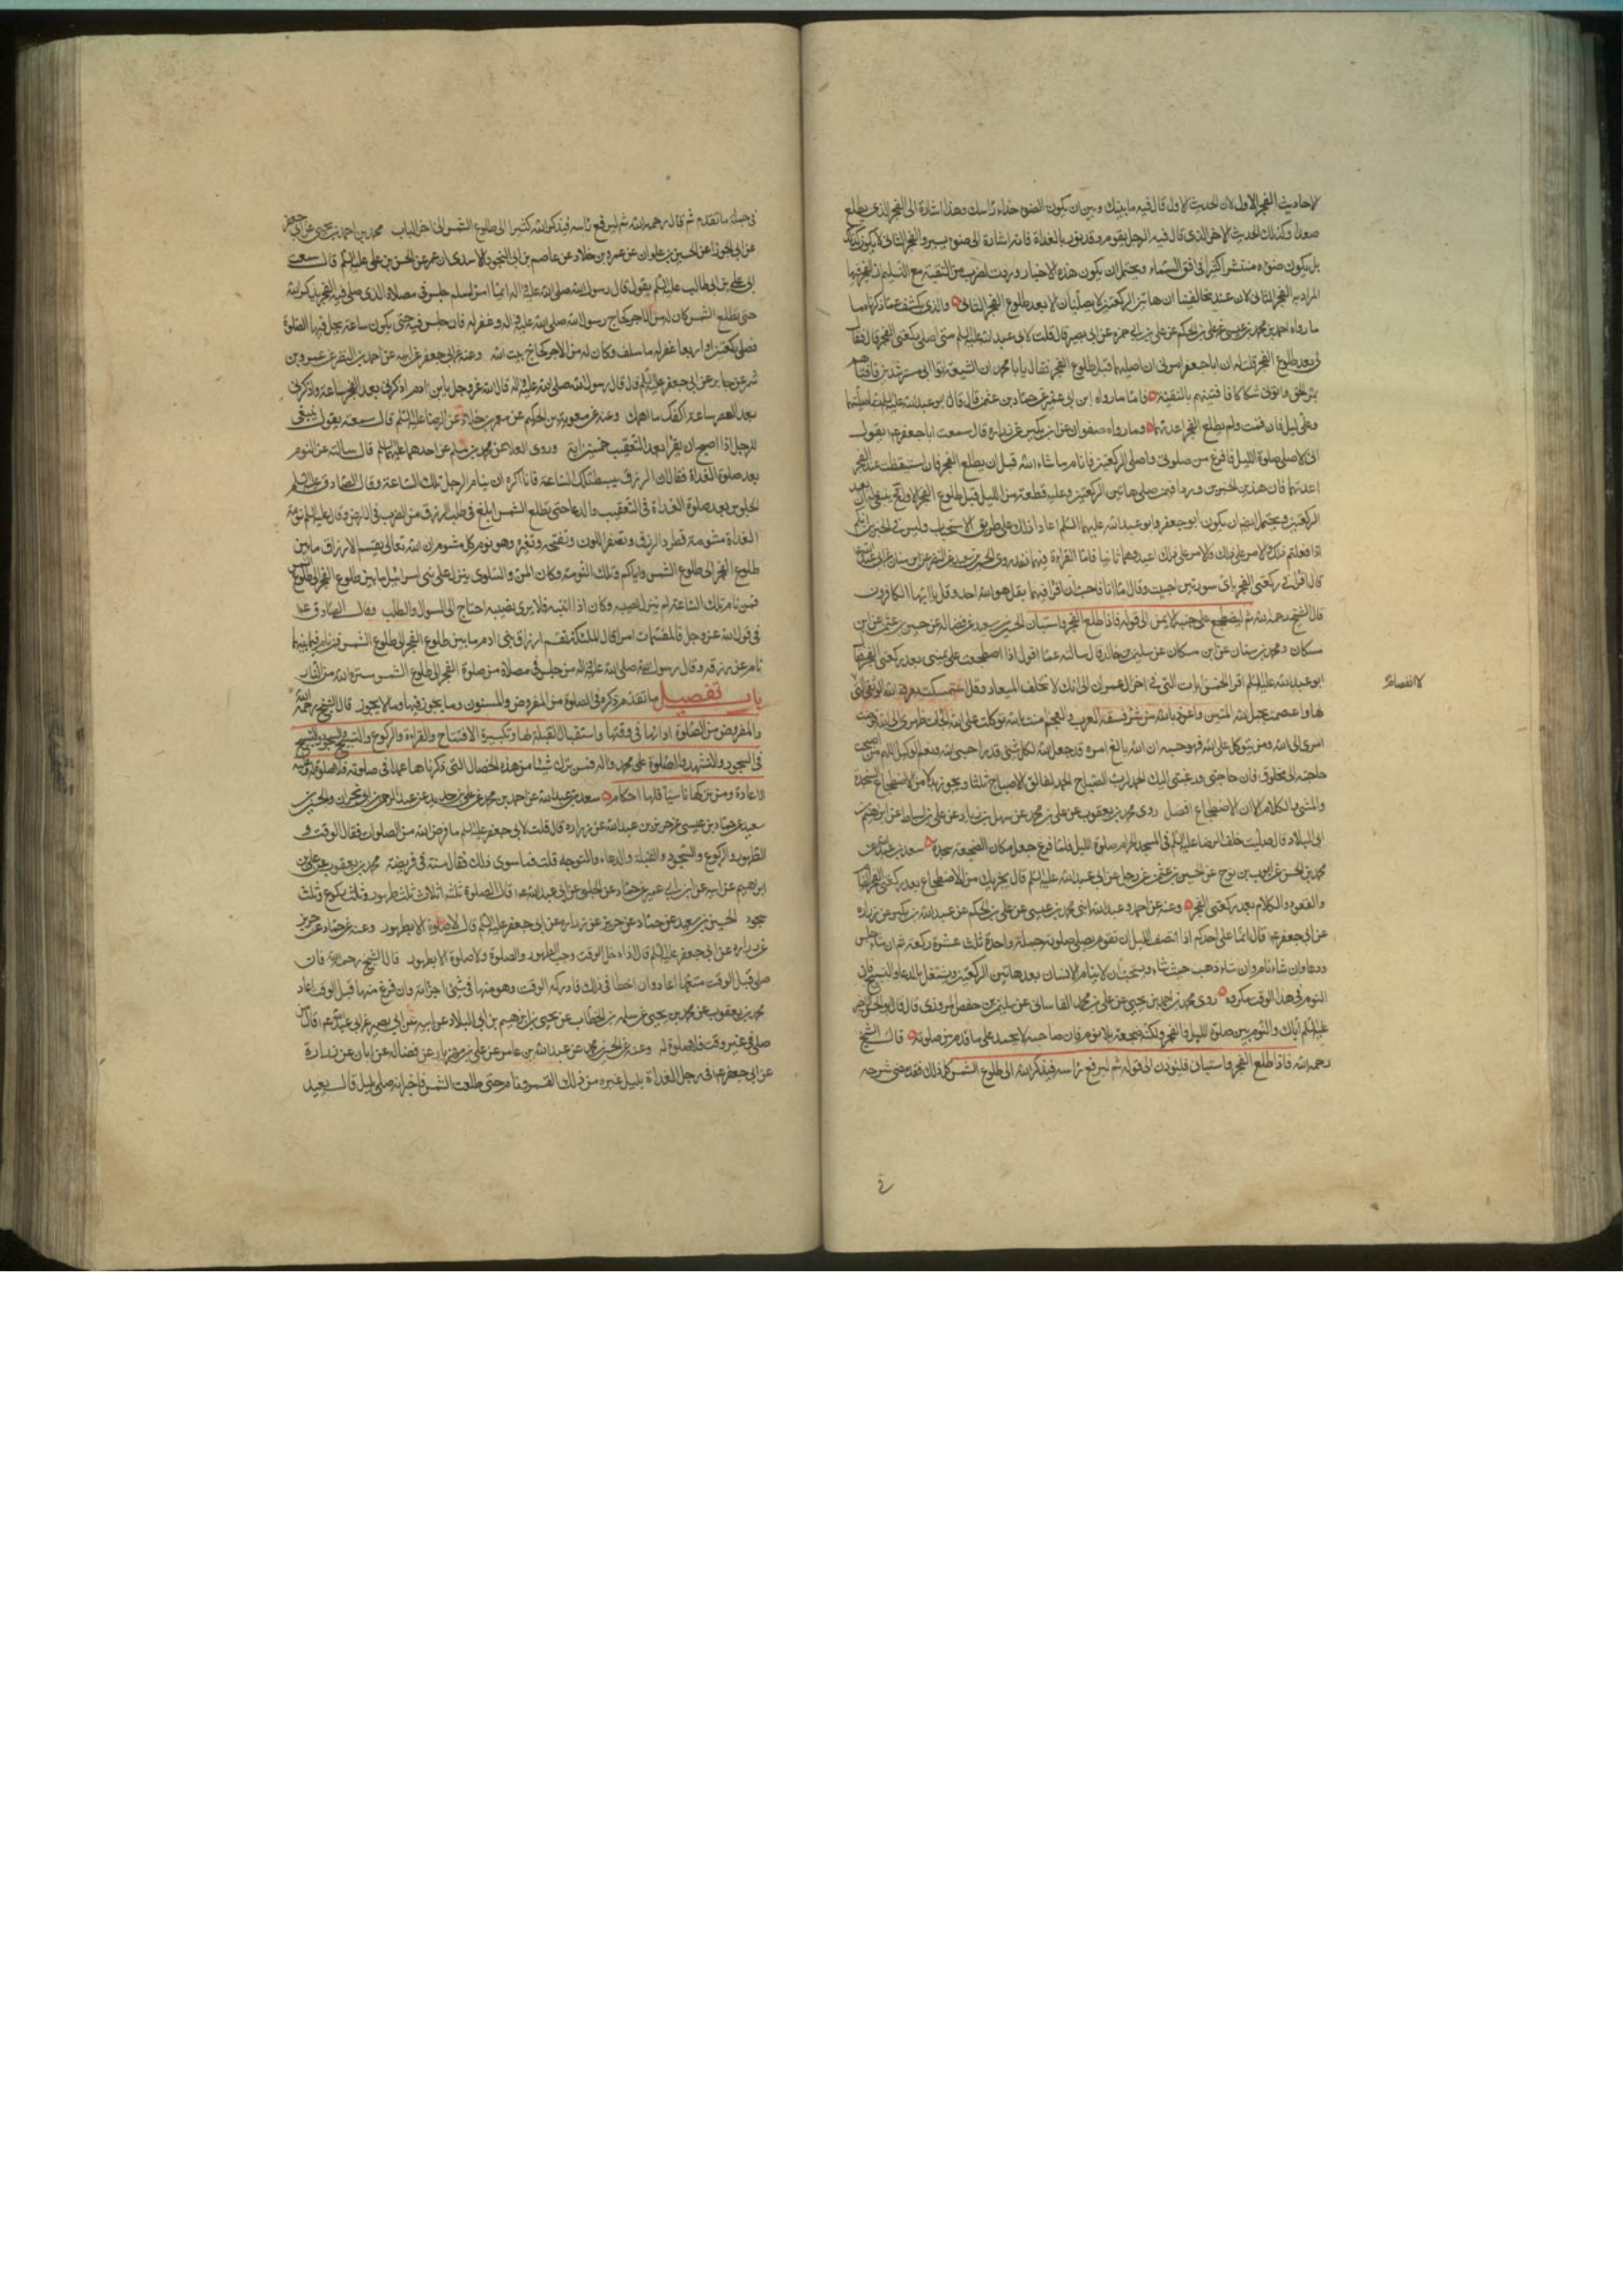 الاحاديث الفجر الاول لان الحديث الاول قال فيه ما بينك وبين ان يكون الضوء حذاء راسك وهذا اشارة الى الفجر الذى يطلع
صعدا وكذلك الحديث الاخر الذى قال فيه الرجل يقوم وقد نور بالغداة فانه اشارة الى ضوء يسير والفجر الثانى لا يكون كذلك
بل يكون ضوءه منتشرا كثيرا فى افق السماء ويحتمل ان يكون هذه الاخبار وردت لضرب من التقية مع التسليم ان الفجر فيها
المراد به الفجر الثانى لان عند مخالفينا ان هاتين الركعتين لا يصليان الا بعد طلوع الفجر الثانى والذى يكشف عما ذكرناه ما
ما رواه احمد بن محمد بن عيسى عن على بن الحكم عن على بن ابى حمزه عن ابى بصير قال قلت لابى عبد الله عليه السلم متى اصلى ركعتى الفجر قال فقال
لى بعد طلوع الفجر قلت له ان ابا جعفر امرنى ان اصليهما قبل طلوع الفجر فقال يا با محمد ان الشيعة اتوا ابى مسترشدين فافتاهم
بمر الحق واتونى شكاكا فافتيتهم بالتقية فاما ما رواه ابن ابى عمير عن حماد بن عثمن قال قال ابو عبد الله عليه السلم ربما صليتهما
وعلى ليل فان قمت ولم يطلع الفجر اعدتهما وما رواه صفوان عن ابن بكير عن زراره قال سمعت ابا جعفر ع يقول
انى لاصلى صلوة الليل فافرغ من صلوتى واصلى الركعتين فانام ما شاء الله قبل ان يطلع الفجر فان استيقظت عند الفجر
اعدتهما فان هذين الخبرين وردا فيمن صلى هاتين الركعتين وعليه قطعة من الليل قبل طلوع الفجر الاول
الركعتين ويحتمل ايضا ان يكون ابو جعفر وابو عبد الله عليهما السلم اعادا ذلك على طريق الاستحباب وليس فى الخبرين
قال اقرا فى ركعتى الفجر باى سورتين احببت وقال اما انا فاحب ان اقرا فيهما بقل هو الله احد وقل يا ايها الكافرون
قال الشيخ رحمه الله ثم ليضطجع على جنبه الايمن الى قوله فاذا طلع الفجر واستبان الحسين بن سعيد عن فضالة عن حسين بن عثمن عن ابن
مسكان ومحمد بن سنان عن ابن مسكان عن سليمن بن خالد قال سالته عما اقول اذا اضطجعت على يمينى بعد ركعتى الفجر فقال
ابو عبد الله عليه السلم اقرا الخمس ايات التى فى اخر ال عمران الى انك لا تخلف الميعاد وقل استمسكت بعروة الله الوثقى التى
لا انفصام
لها واعتصمت بحبل الله المتين واعوذ بالله من شر فسقة العرب والعجم امنت بالله توكلت على الله الجات ظهرى الى الله فوضت
امرى الى الله ومن يتوكل على الله فهو حسبه ان الله بالغ امره قد جعل الله لكل شىء قدرا حسبى الله ونعم الوكيل اللهم من اصبحت
حاجته الى مخلوق فان حاجتى ورغبتى اليك الحمد لرب الصباح الحمد لفالق الاصباح ثلثا ويجوز بدلا من الاضطجاع السجدة
والمشى والكلام الا ان الاضطجاع افضل روى محمد بن يعقوب عن على بن محمد عن سهل بن زياد عن على بن اسباط عن ابراهيم بن
ابى البلاد قال صليت خلف الرضا عليه السلم فى المسجد الحرام صلوة الليل فلما فرغ جعل مكان الضجعة سجدة سعد بن عبد الله عن
محمد بن الحسن عن ايوب بن نوح عن الحسين بن عثمن عن رجل عن ابى عبد الله عليه السلم قال يجزيك من الاضطجاع بعد ركعتى الفجر القيام
والقعود والكلام بعد ركعتى الفجر وعنه عن احمد وعبد الله ابنى محمد بن عيسى عن على بن الحكم عن عبد الله بن بكير عن زراره
عن ابى جعفر ع قال انما على احدكم اذا انتصف الليل ان يقوم فيصلى صلوته جملة واحدة ثلث عشرة ركعة ثم ان شاء جلس
ودعا وان شاء نام وان شاء ذهب حيث شاء ويستحب ان لا ينام الانسان بعد هاتين الركعتين ويشتغل بالدعاء والتسبيح فان
النوم فى هذا الوقت مكروه روى محمد بن احمد بن يحيى عن على بن محمد القاسانى عن سليمن بن حفص المروزى قال قال ابو الحسن الاخير
عليه السلم اياك والنوم بين صلوة الليل والفجر ولكن ضجعة بلا نوم فان صاحبه لا يحمد على ما قدم من صلوته قال الشيخ
رحمه الله فاذا طلع الفجر واستبان فليؤذن الى قوله ثم ليرفع راسه فيذكر الله الى طلوع الشمس كل ذلك فقد مضى شرحه
فى
فى جملة ما تقدم ثم قال رحمه الله ثم ليرفع راسه فيذكر الله كثيرا الى طلوع الشمس الى اخر الباب محمد بن احمد بن يحيى عن ابى جعفر
عن ابى الجوزا عن الحسين بن علوان عن عمرو بن خالد عن عاصم بن ابى النجود الاسدى عن ابن عمر عن الحسن بن على عليه السلم قال سمعت
ابى على بن ابى طالب عليه السلم يقول قال رسول الله صلى الله عليه واله ايما امرئ مسلم جلس فى مصلاه الذى صلى فيه الفجر يذكر الله
حتى تطلع الشمس كان له من الاجر كحاج رسول الله صلى الله عليه واله وغفر له فان جلس فيه حتى يكون ساعة يحل فيها الصلوة
فصلى ركعتين او اربعا غفر له ما سلف وكان له من الاجر كحاج بيت الله وعنه عن ابى جعفر عن ابيه عن احمد بن النضر عن عمرو بن
شمر عن جابر عن ابى جعفر عليه السلم قال قال رسول الله صلى الله عليه واله قال الله عز وجل يا ابن ادم اذكرنى بعد الفجر ساعة واذكرنى
بعد العصر ساعة اكفك ما اهمك وعنه عن معوية بن الحكيم عن معمر بن خلاد عن الرضا عليه السلم قال سمعته يقول ينبغى
للرجل اذا اصبح ان يقرا بعد التعقيب خمسين اية وروى العلا عن محمد بن مسلم عن احدهما عليهما السلم قال سالته عن النوم
بعد صلوة الغداة فقال ان الرزق يبسط تلك الساعة فانا اكره ان ينام الرجل تلك الساعة وقال الصادق عليه السلم
الجلوس بعد صلوة الغداة فى التعقيب والدعا حتى تطلع الشمس ابلغ فى طلب الرزق من الضرب فى الارض وقال عليه السلم نومة
الغداة مشومة تطرد الرزق وتصفر اللون وتقبحه وتغيره وهو نوم كل مشوم ان الله تعالى يقسم الارزاق ما بين
طلوع الفجر الى طلوع الشمس واياكم وتلك النومة وكان المن والسلوى ينزل على بنى اسرائيل ما بين طلوع الفجر الى طلوع الشمس
فمن نام تلك الساعة لم ينزل نصيبه وكان اذا انتبه فلا يرى نصيبه احتاج الى السوال والطلب وقال الصادق ع
فى قول الله عز وجل فالمقسمات امرا قال الملئكة تقسم ارزاق بنى ادم ما بين طلوع الفجر الى طلوع الشمس فمن نام فيما بينهما
نام عن رزقه وقال رسول الله صلى الله عليه واله من جلس فى مصلاه من صلوة الفجر الى طلوع الشمس ستره الله من النار
باب تفصيل ما تقدم ذكره فى الصلوة من المفروض والمسنون وما يجوز فيها وما لا يجوز قال الشيخ رحمه الله
والمفروض من الصلوة اداؤها فى وقتها واستقبال القبلة لها وتكبيرة الافتتاح والقراءة والركوع والتسبيح والسجود والتسبيح
فى السجود والتشهد والصلوة على محمد واله فمن ترك شيئا من هذه الخصال التى ذكرناها عمدا فى صلوته فلا صلوة له وعليه
الاعادة ومن تركها ناسيا فلها احكام سعد بن عبد الله عن احمد بن محمد عن على بن حديد عن عبد الرحمن بن ابى نجران والحسين بن
سعيد عن حماد بن عيسى عن حريز بن عبد الله عن زراره قال قلت لابى جعفر عليه السلم ما فرض الله من الصلوات فقال الوقت و
الطهور والركوع والسجود والقبلة والدعاء والتوجه قلت فما سوى ذلك فقال سنة فى فريضة محمد بن يعقوب عن على بن
ابراهيم عن ابيه عن ابن ابى عمير عن حماد عن الحلبى عن ابى عبد الله ع قال الصلوة ثلثة اثلاث ثلث طهور وثلث ركوع وثلث
سجود الحسين بن سعيد عن حماد عن حريز عن زراره عن ابى جعفر عليه السلم قال لا صلوة الا بطهور وعنه عن حماد عن حريز
عن زراره عن ابى جعفر عليه السلم قال اذا دخل الوقت وجب الطهور والصلوة ولا صلوة الا بطهور قال الشيخ رحمه الله فان
صلى قبل الوقت متعمدا اعاد وان اخطا فى ذلك فادركه الوقت وهو منها فى شىء اجزاته وان فرغ منها قبل الوقت اعاد
محمد بن يعقوب عن محمد بن يحيى عن سلمه بن الخطاب عن يحيى بن ابراهيم بن ابى البلاد عن ابيه عن ابى بصير عن ابى عبد الله ع قال من
صلى فى غير وقت فلا صلوة له وعنه عن الحسين بن محمد عن عبد الله بن عامر عن على بن مهزيار عن فضاله عن ابان عن زرارة
عن ابى جعفر ع فى رجل صلى الغداة بليل غره من ذلك القمر ونام حتى طلعت الشمس فاخبر انه صلى بليل قال يعيد